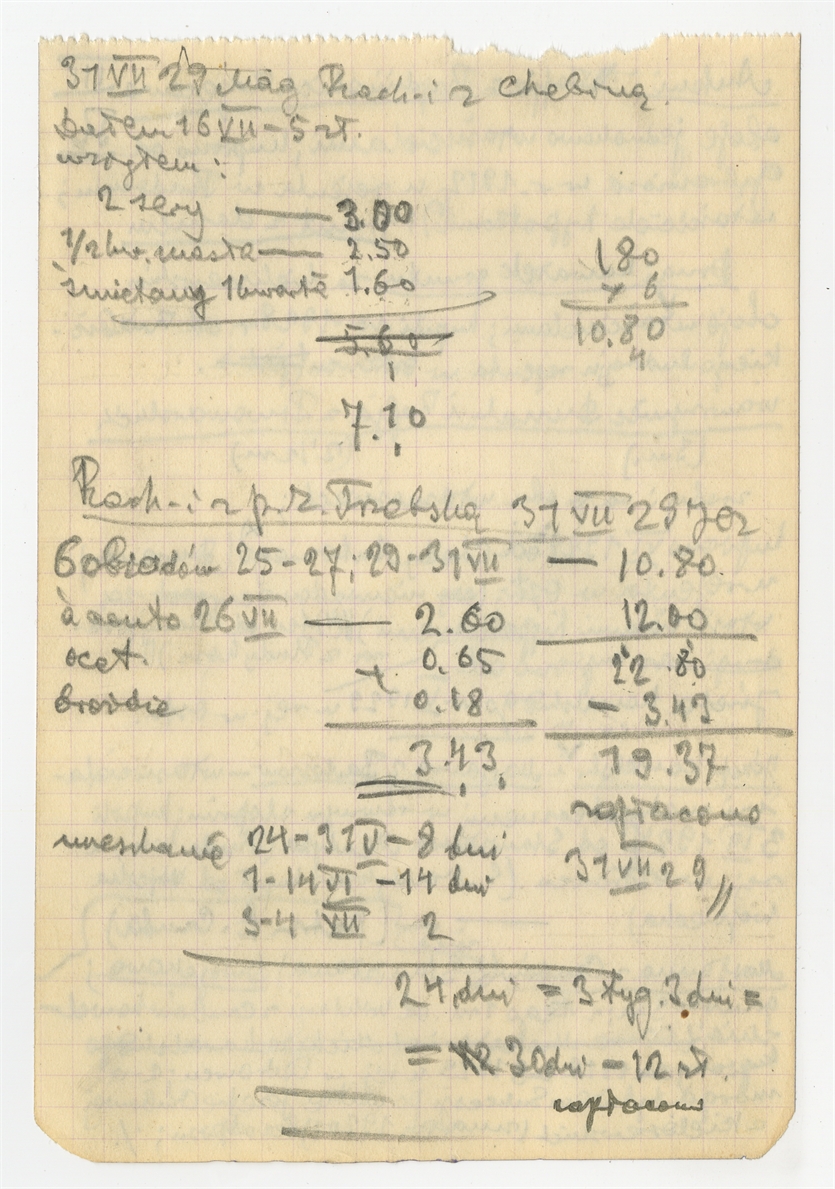 31 VII 29 Mag Rach-i z Chebiną.
Dałem 16 VII - 5 zł.
wziąłem:
2 sery — 3.00
1/2 kw. masła — 2.50
śmietany 1 kwartę 1.60
5.60
7.10
180
× 6
10.80
4
Rach-i z p. Z. Trzebską 31 VII 29 Jer
6 obiadów 25-27; 29-31 VII — 10.80
12.00
22.80
- 3.43
19.37
zapłacono
31 VII 29 //
à conto 26 VII — 2.60
ocet. + 0.65
0.18
3.43
mieszkanie 24-31 V - 8 dni
1-14 VI - 14 dni
3-4 VII 2
24 dni = 3 tyg. 3 dni =
= 30 dni - 12 zł.
zapłacono